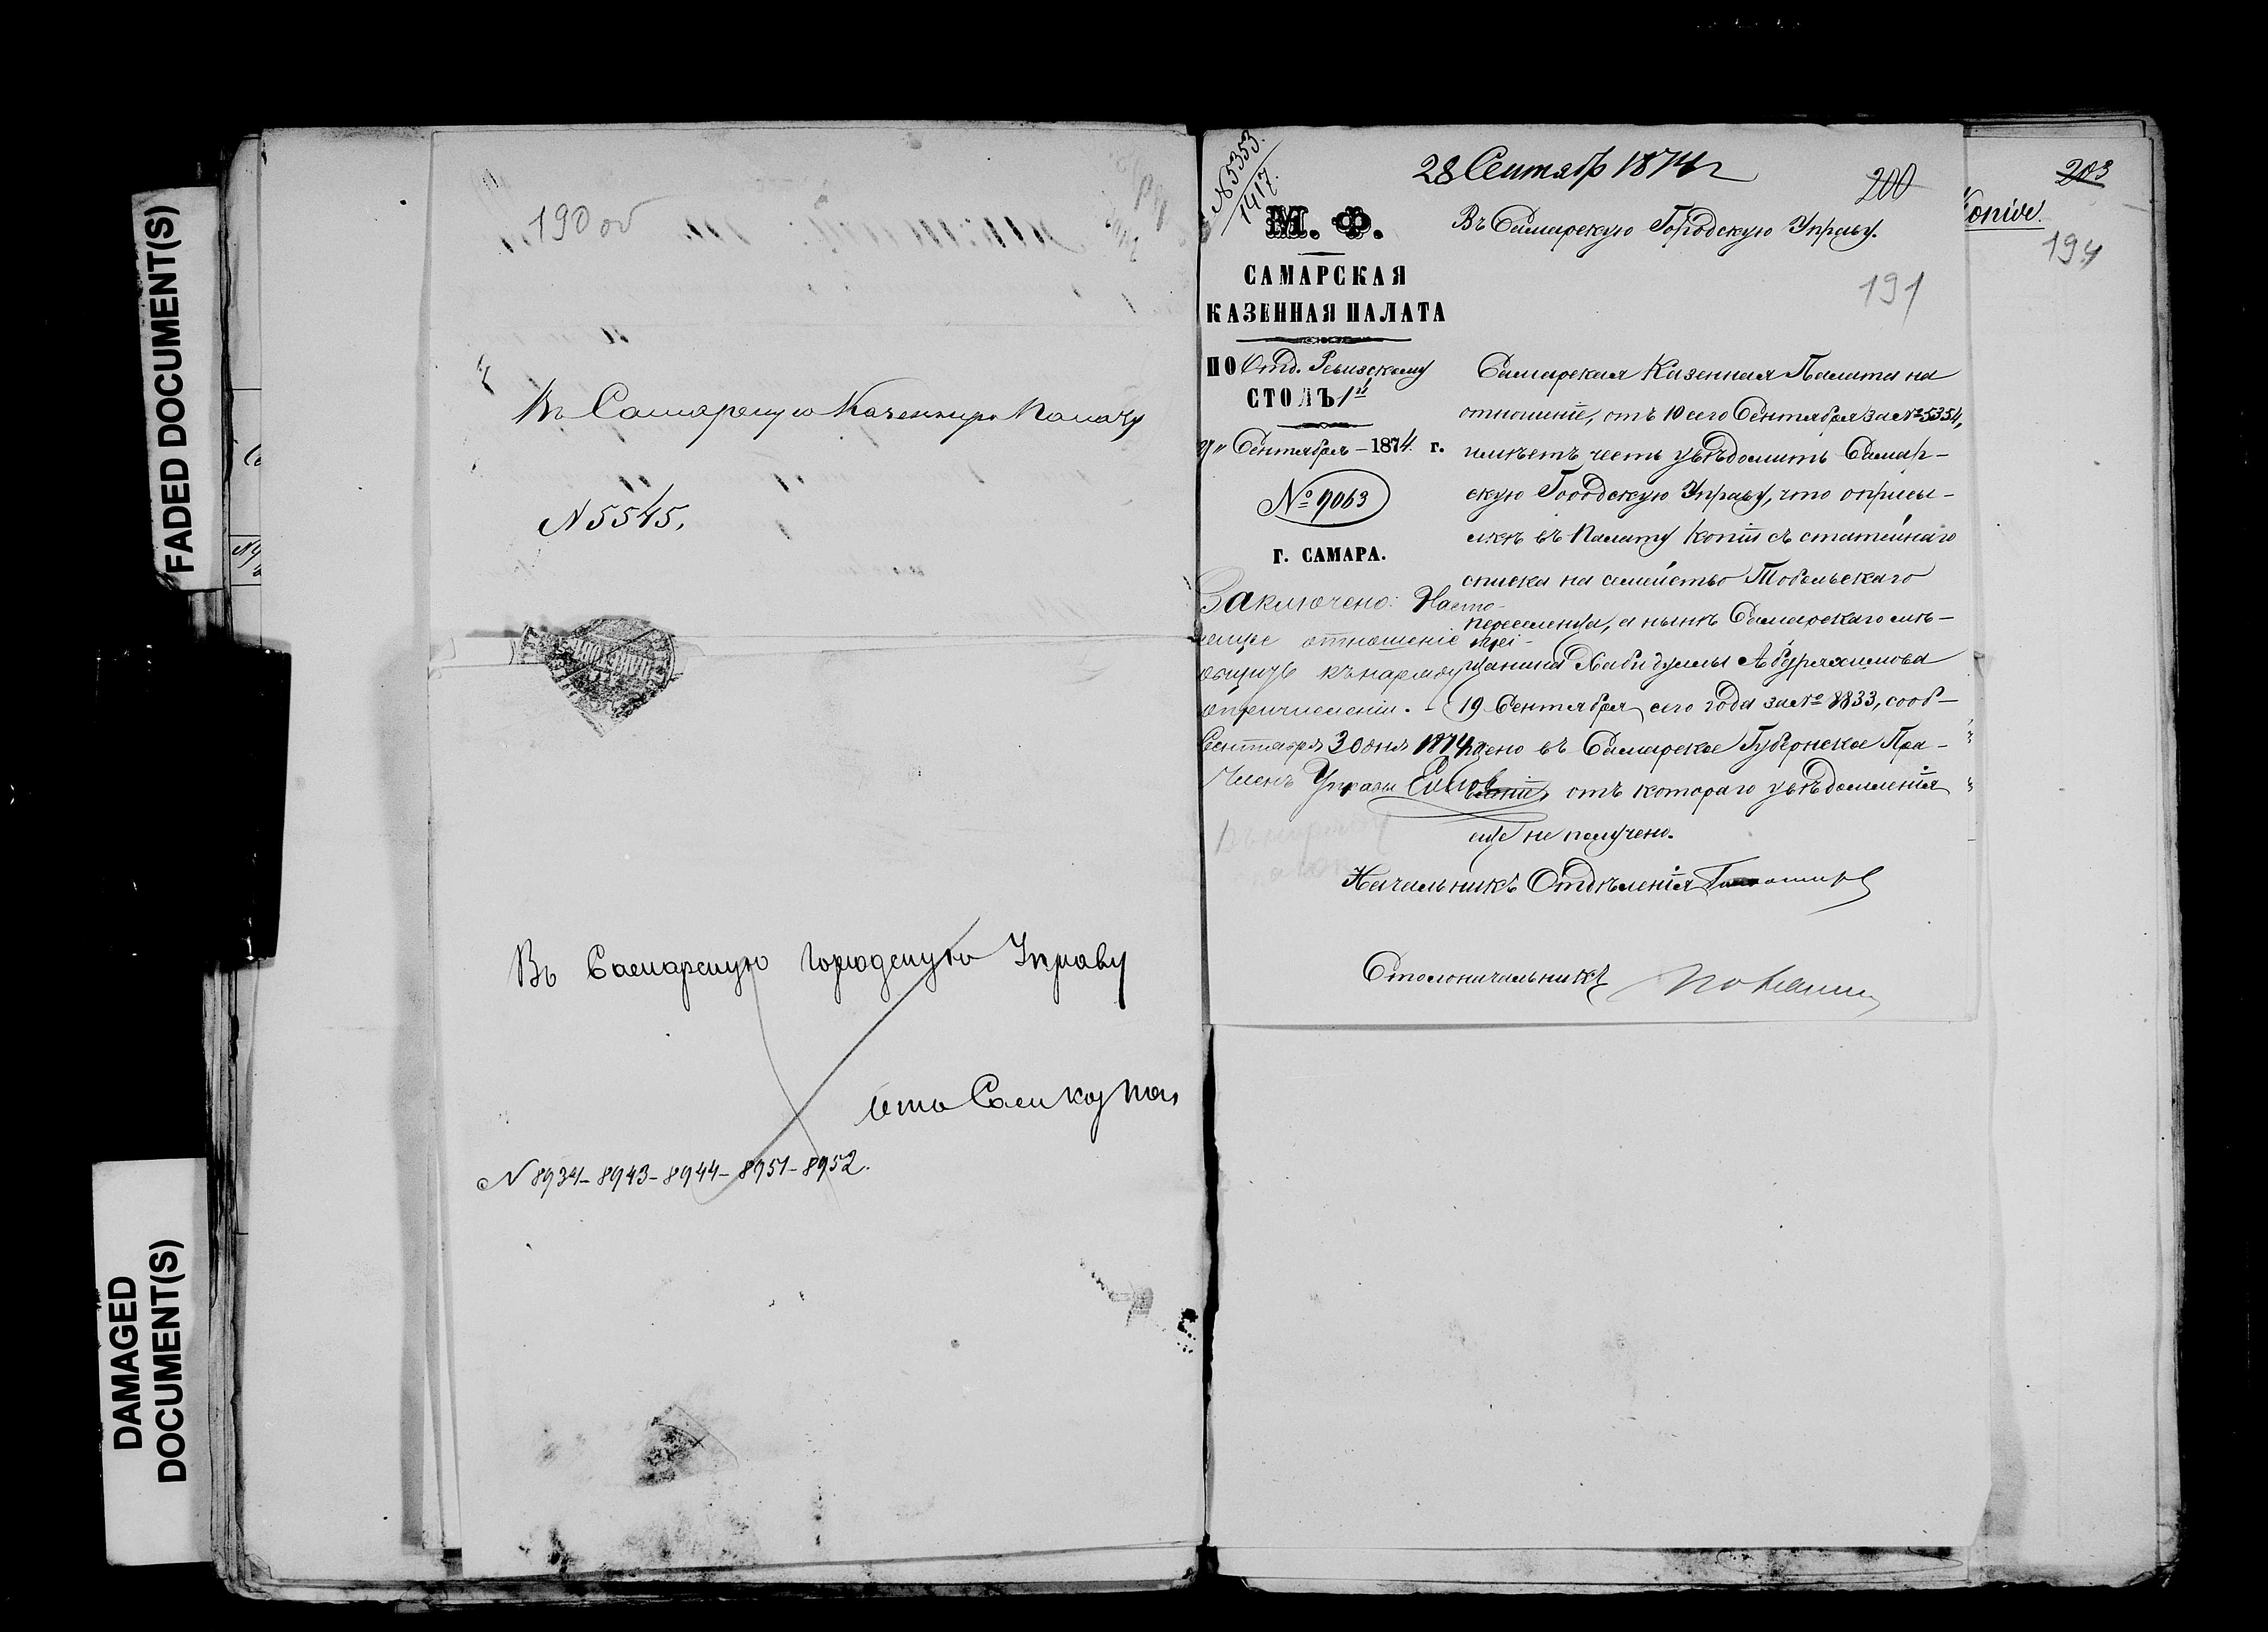 FADED DOCUMENT(S)
DAMAGED
DOCUMENT(S)
190 об
Въ Самарскую Казенную Палату
N 5545.
Въ Самарскую Городскую Управу
отъ Сам каз пал
N 8934- 8943- 8944- 8951- 8952.
N 5353.
1417.
28 Сентябр 1874 г
200
М. Ф.
Въ Самарскую Городскую Управу.
191
САМАРСКАЯ
КАЗЕННАЯ ПАЛАТА
ПО Отд. Ревизскому
СТОЛЪ 1й
Сентября - 1874 г.
№ 9063
Г. САМАРА.
Самарская Казенная Палата на
отношеніе, отъ 10 сего Сентября за № 5354,
имѣетъ честь увѣдомить Самар-
скую Городскую Управу, что о присы-
лкѣ въ Палату копіи съ статейнаго
списка на семейство Тобольскаго
переселенца, а нынѣ Самарскаго мѣ-
щанина Хабибуллы Абдряхимова
19 Сентября сего года за № 8833, сооб-
щено въ Самарское Губернское Пра-
вленіе, отъ котораго увѣдомленія
еще не получено.
Начальникъ Отдѣленія
Столоначальникъ
Заключено: Насто-
ящее отношеніе прі-
общить къ наряду
о причисленіи.
Сентября 30 дня 1874 г
Членъ Управы
203
194